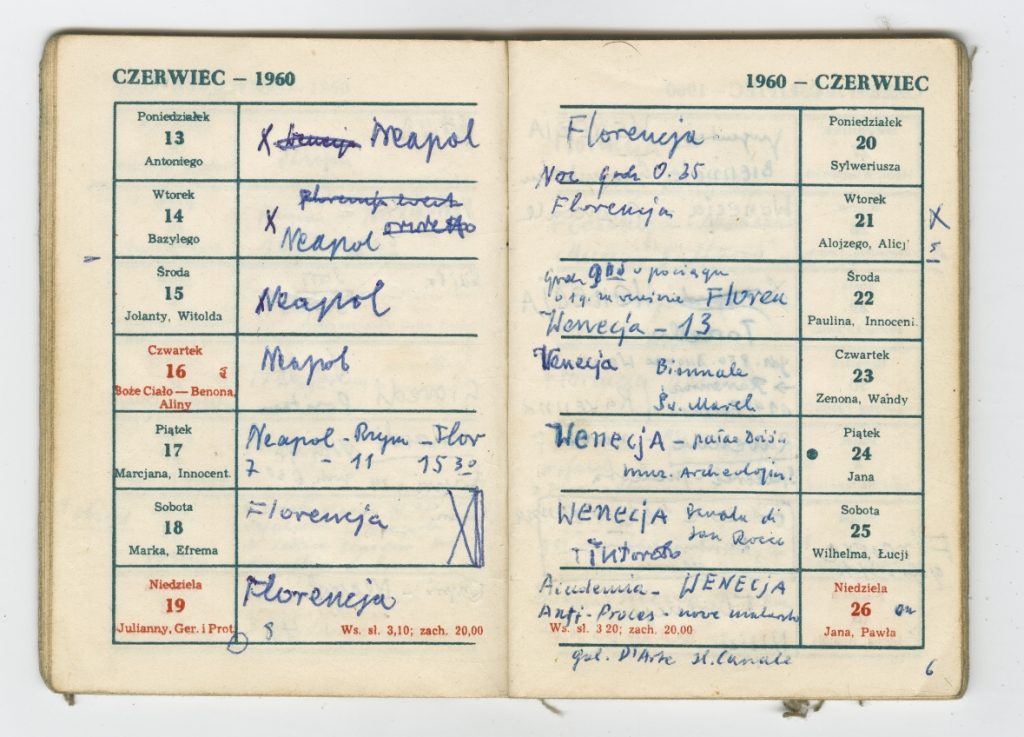 CZERWIEC — 1960
Poniedziałek
13
Antoniego
X Neapol
Wtorek
14
Bazylego
X Neapol
Środa
15
Jolanty, Witolda
Neapol
Czwartek
16
Boże Ciało — Benona,
Aliny
Neapol
Piątek
17
Marcjana, Innocent.
Neapol - Rzym - Flor
7 - 11 15 30
Sobota
18
Marka, Efrema
Florencja
Niedziela
19
Julianny, Ger. i Prot.
Florencja
8
Ws. sł. 3,10; zach. 20,00
1960 — CZERWIEC
Florencja
Poniedziałek
20
Sylweriusza
Noc godz 0.35
Florencja
Wtorek
21
Alojzego, Alicj
X
5
godz
pociągu
Floren
Wenecja - 13
Środa
22
Paulina, Innoceni.
Wenecja Biennale
Św. Marek
Czwartek
23
Zenona, Wandy
WENECJA -
muz. Archeologiczn.
Piątek
24
Jana
WENECJA Scuola di
San Rocco
TINTORETTO
Sobota
25
Wilhelma, Łucji
Accademia - WENECJA
Anti-Proces - nowe malarstwo
Ws. sł. 3 20; zach. 20.00
Niedziela
26
Jana, Pawła
gal. D'Arte
6